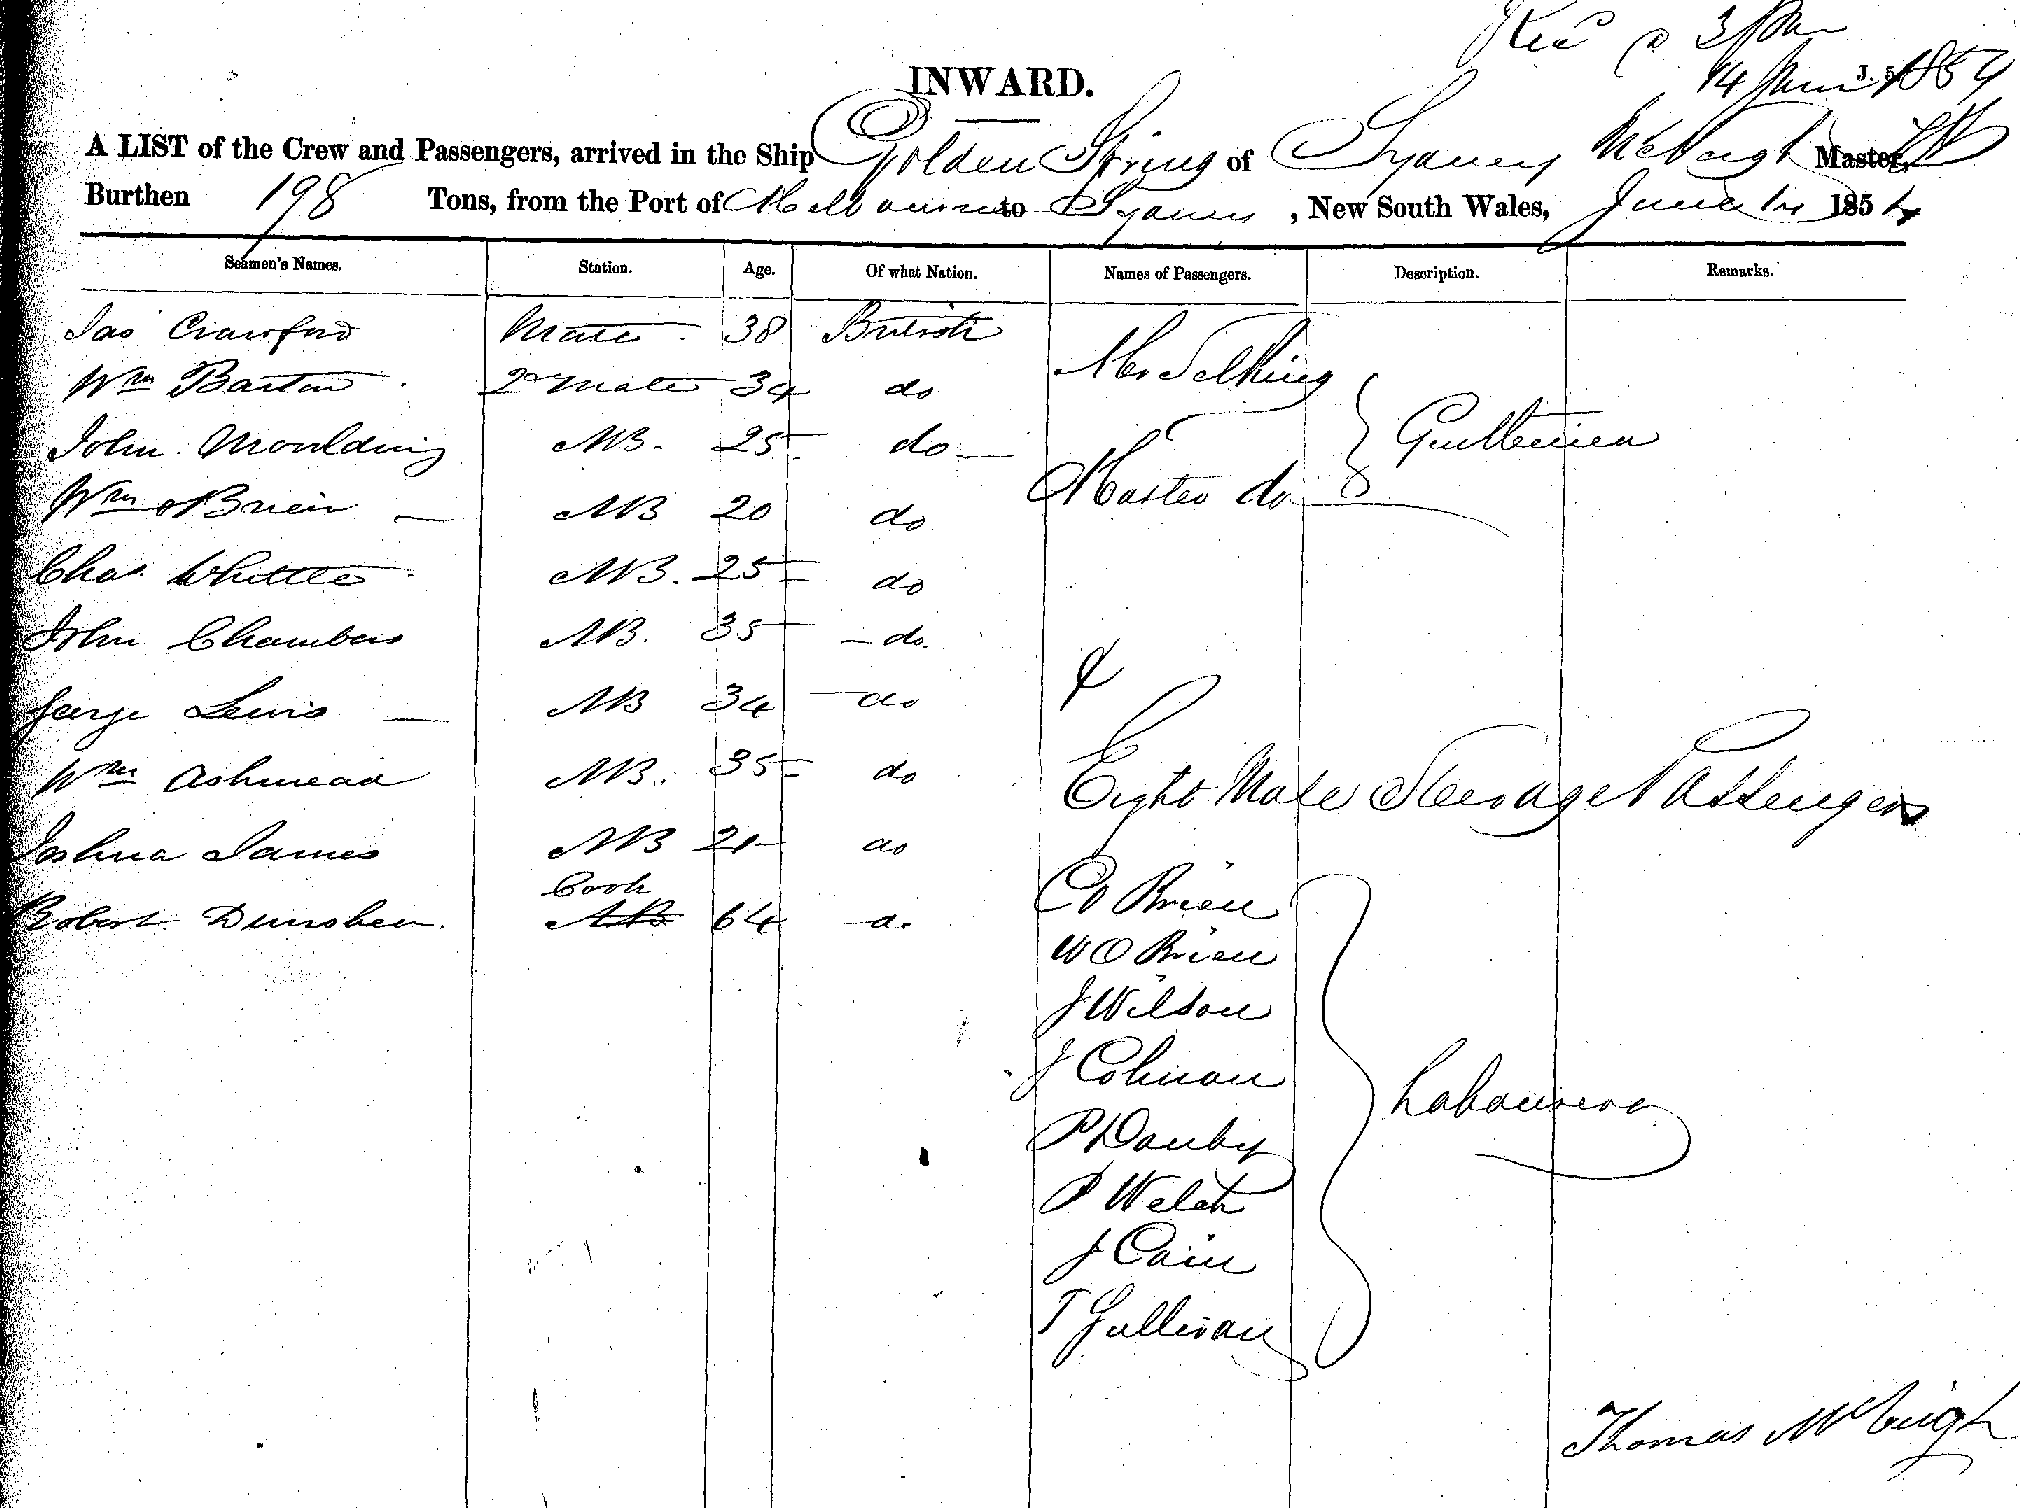 Recd @ 3 pm
14 June 1854
INWARD.
A LIST of the Crew and Passengers, arrived in the Ship Golden Spring of Sydney McVeigh Master,
Burthen 198 Tons, from the Port of Melbourne to Sydney, New South Wales, June 14 1854
Seamen's Names. Station. Age. Of what Nation. Names of Passengers. Description. Remarks.
Jas Crawford Mate 38 British
Mr Selkirg
Wm Barton 2d Mate 34 do
John Moulding AB. 25 do Gentlemen
Wm OBrien AB 20 do Master do
Chas Whittle AB. 25 do
John Chambers AB. 35 do.
&
George Lewis AB 34 do
Wm Ashmead AB. 35 do Eight Male Steerage Passengers
Joshua James AB 21 do
Cook
Robert Dunshea. AB 64 do
C O Brien
W O Brien
J Wilson
J Colman
Labourers
P Danby
P Welch
J Cain
T Sullivan
Thomas McVeigh